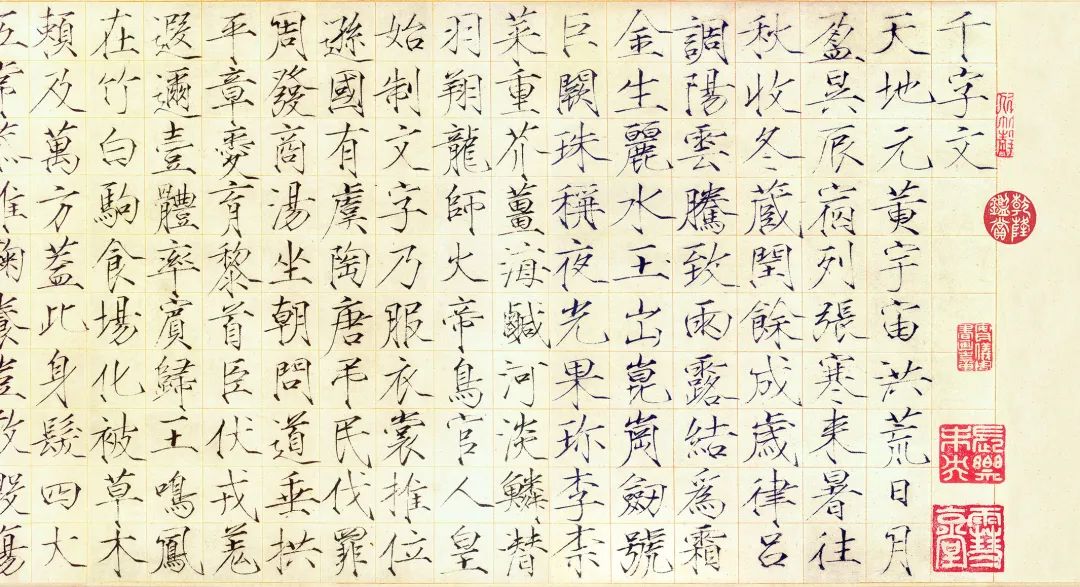 千字文
天地元黄宇宙洪荒日月
盈昃辰宿列張寒来暑往
秋收冬蔵閏餘成歲律吕
調陽雲騰致雨露結為霜
金生麗水玉出崑崗劒號
巨闕珠稱夜光果珎李柰
菜重芥薑海鹹河淡鱗潜
羽翔龍師火帝鳥官人皇
始制文字乃服衣裳推位
遜國有虞陶唐弔民伐罪
周發商湯坐朝問道垂拱
平章愛育黎首臣伏戎羌
遐邇壹體率賓歸王鳴鳳
在竹白駒食場化被草木
頼及萬方蓋此身髮四大
五常恭惟鞠養豈敢毀傷
乾隆鑑賞